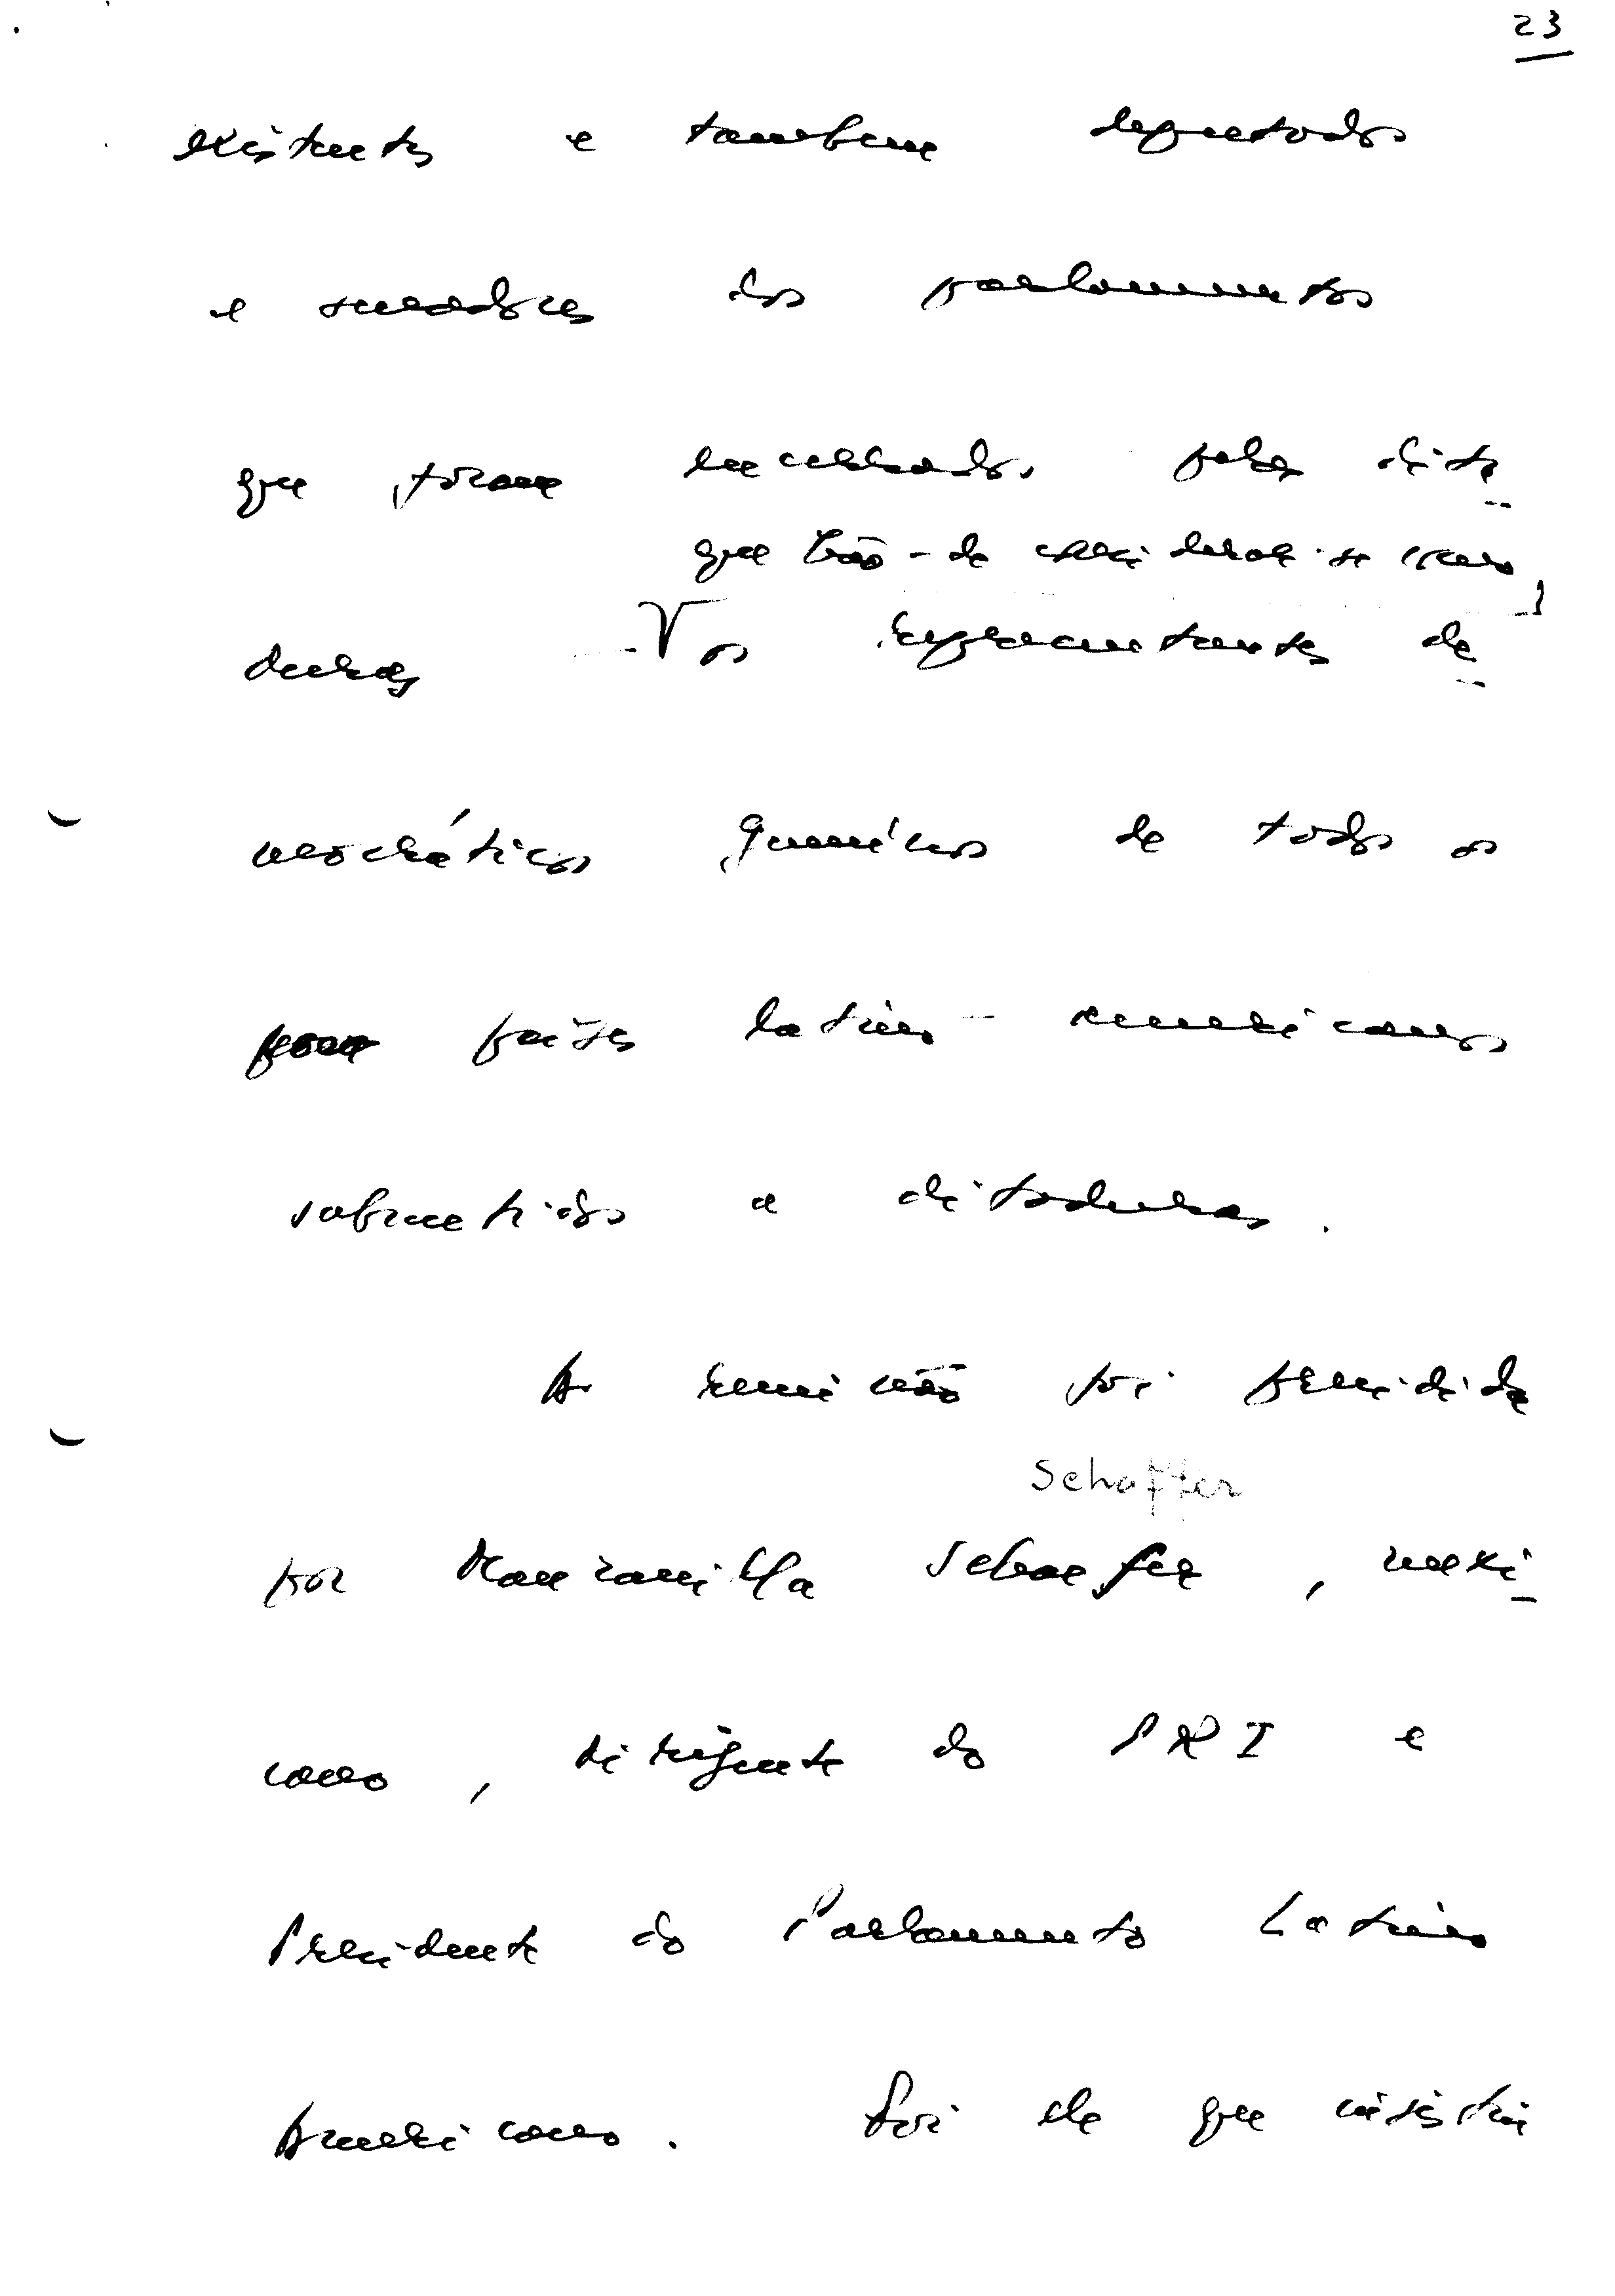 23
existentes e tambem deputados
e senadores dos parlamentos
que foram encerrados pelas dita-
que hão-de considerar-se como
duras os representantes de-
mocráticos genuínos de todos os
países latino-americanos
submetidos a ditaduras.
A reunião foi presidida
Schaffer
por Manzanilla Schaffer, mexi-
cano, dirigente do PRI e
Presidente do Parlamento Latino
Americano. Foi ele que insistiu